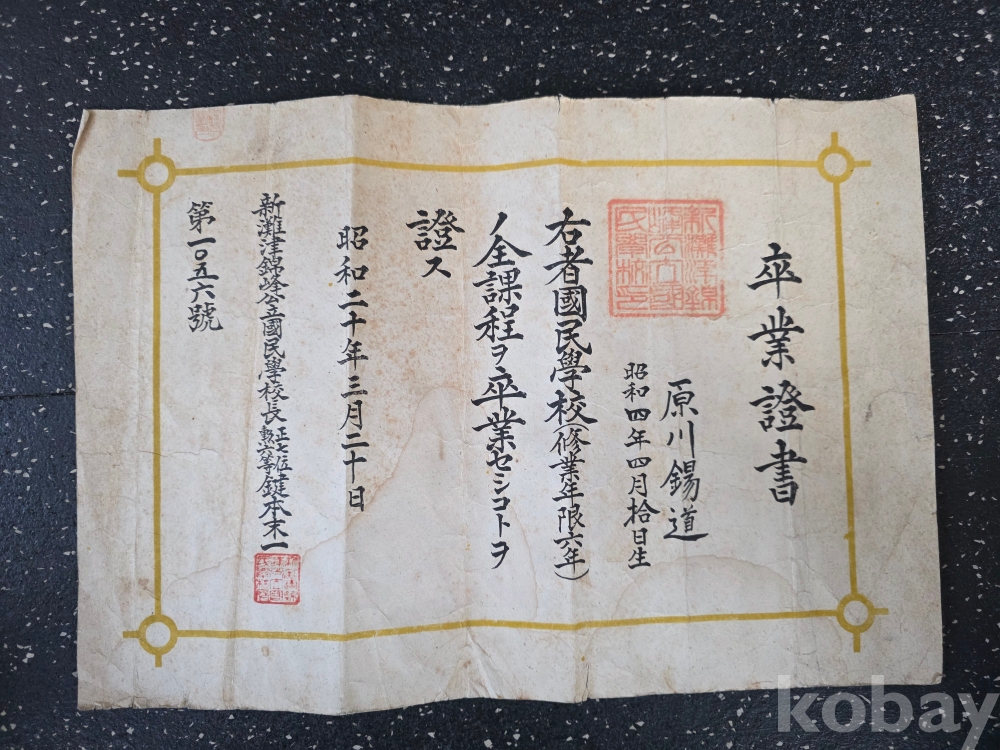 卒業證書
原川錫道
昭和四年四月拾日生
右者國民學校(修業年限六年)
ノ全課程ヲ卒業セシコトヲ
證ス
昭和二十年三月二十日
新灘津錦峰公立國民學校長 正七位 勲六等 鍵本末一
第一〇五六號
kobay